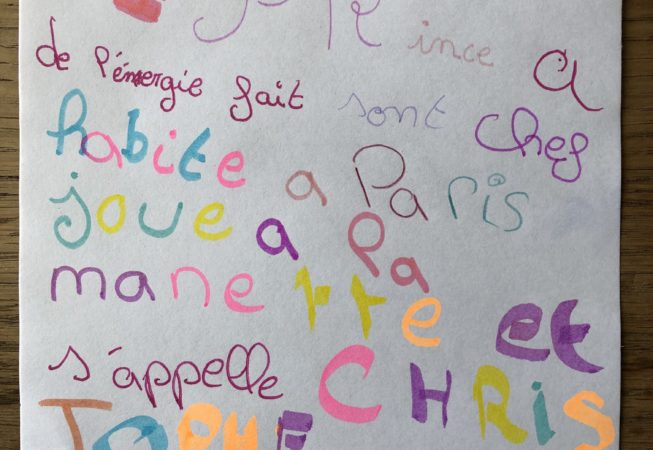 ince a
de l'énergie fait sont chef
habite a Paris
joue a la
manette et
s'appelle CHRIS
TOPHE